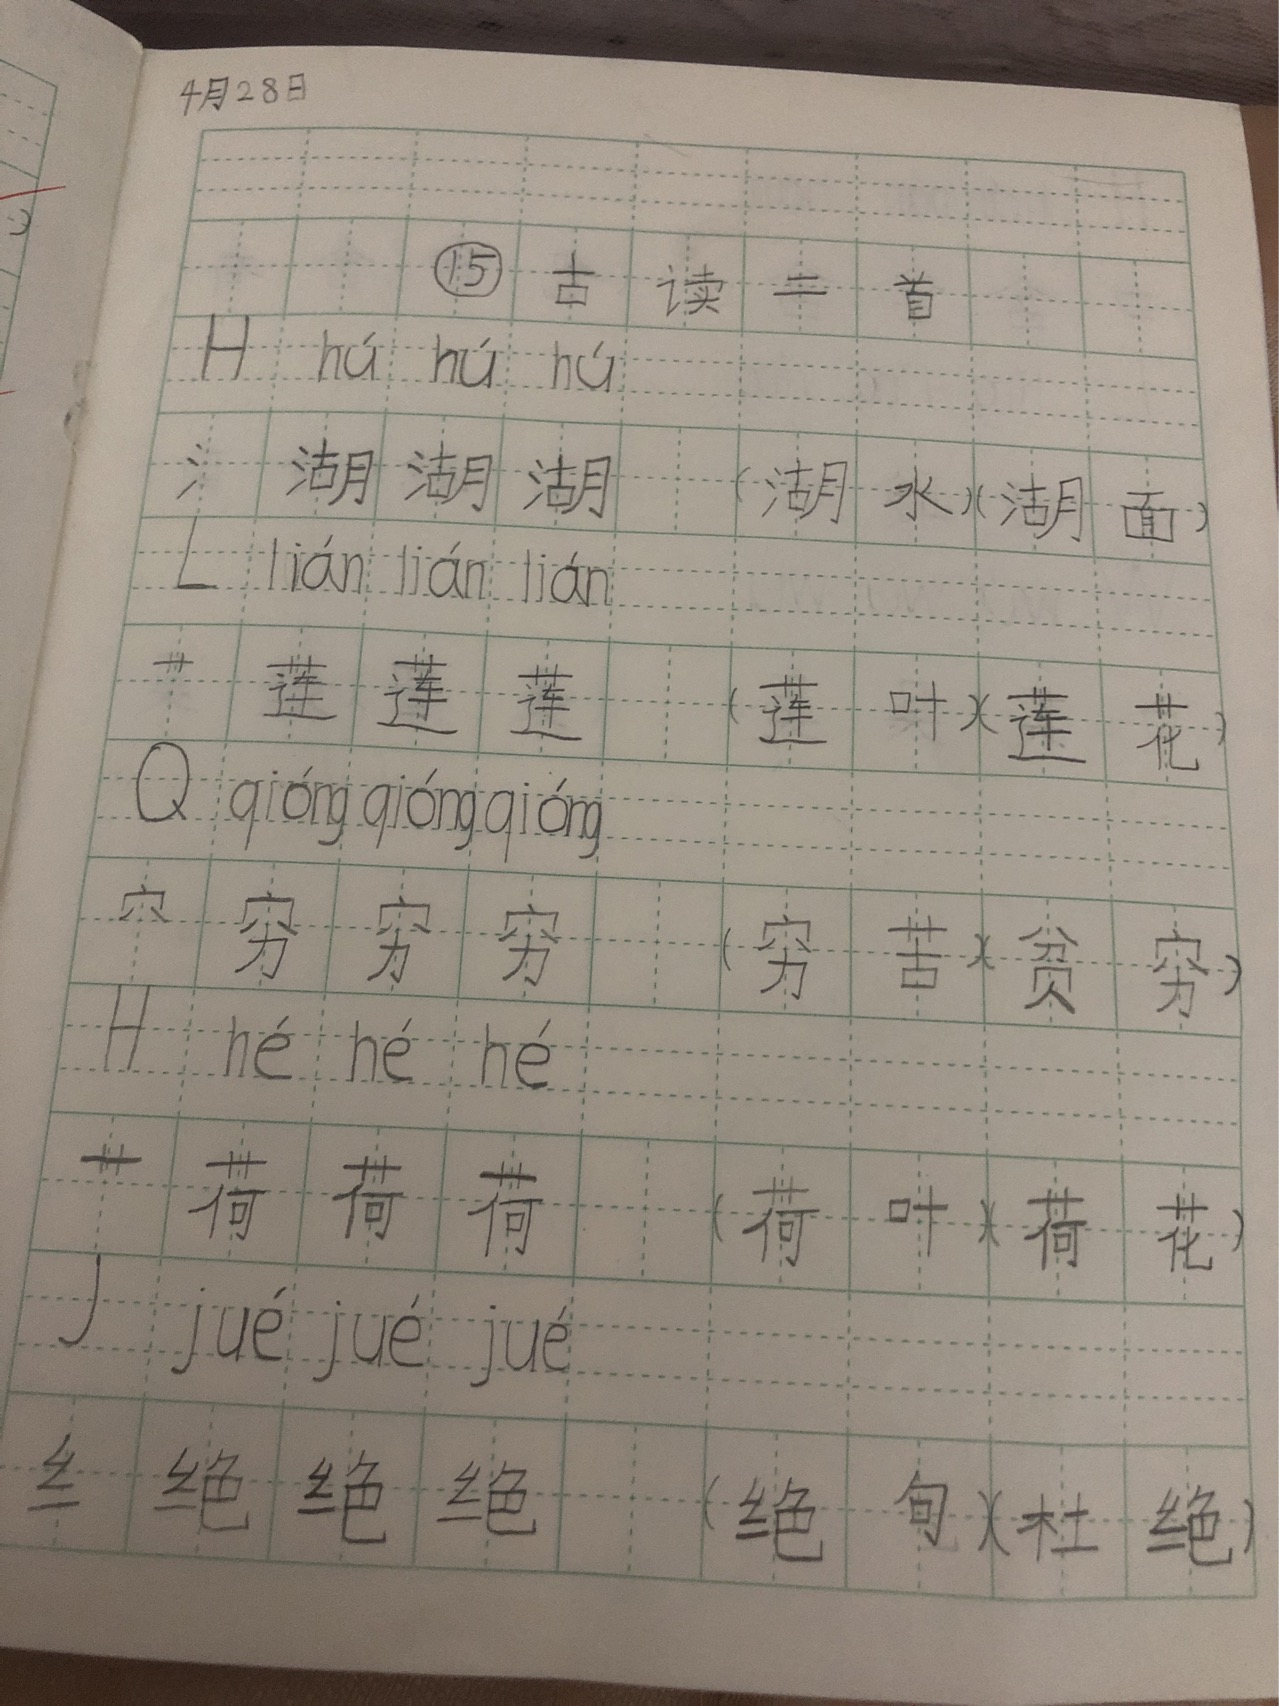 4月28日
⑮古读二首
H hú hú hú
氵 湖 湖 湖 (湖水)(湖面)
L lián lián lián
艹 莲 莲 莲 (莲叶)(莲花)
Q qióng qióng qióng
穴 穷 穷 穷 (穷苦)(贫穷)
H hé hé hé
艹 荷 荷 荷 (荷叶)(荷花)
J jué jué jué
纟 绝 绝 绝 (绝句)(杜绝)